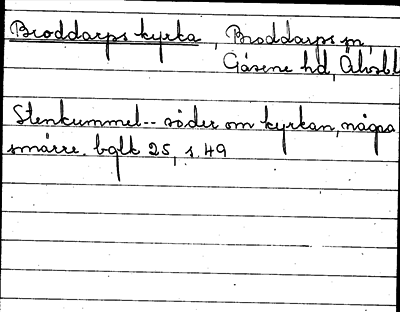 Broddarps kyrka, Broddarps sn,
Gäsene hd, Älvsbl
Stenkummel-- söder om kyrkan, några
smärre. bglk 25, s. 49